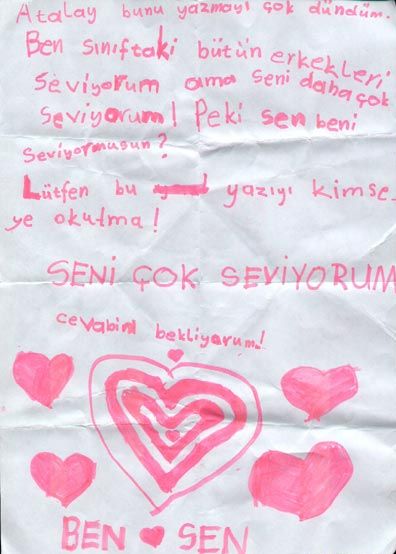 Atalay bunu yazmayı çok dündüm.
Ben sınıftaki bütün erkekleri
seviyorum ama seni daha çok
seviyorum! Peki sen beni
seviyormusun?
Lütfen bu yazıyı kimse-
ye okutma!
SENİ ÇOK SEVİYORUM
cevabini bekliyorum!
BEN ♥ SEN